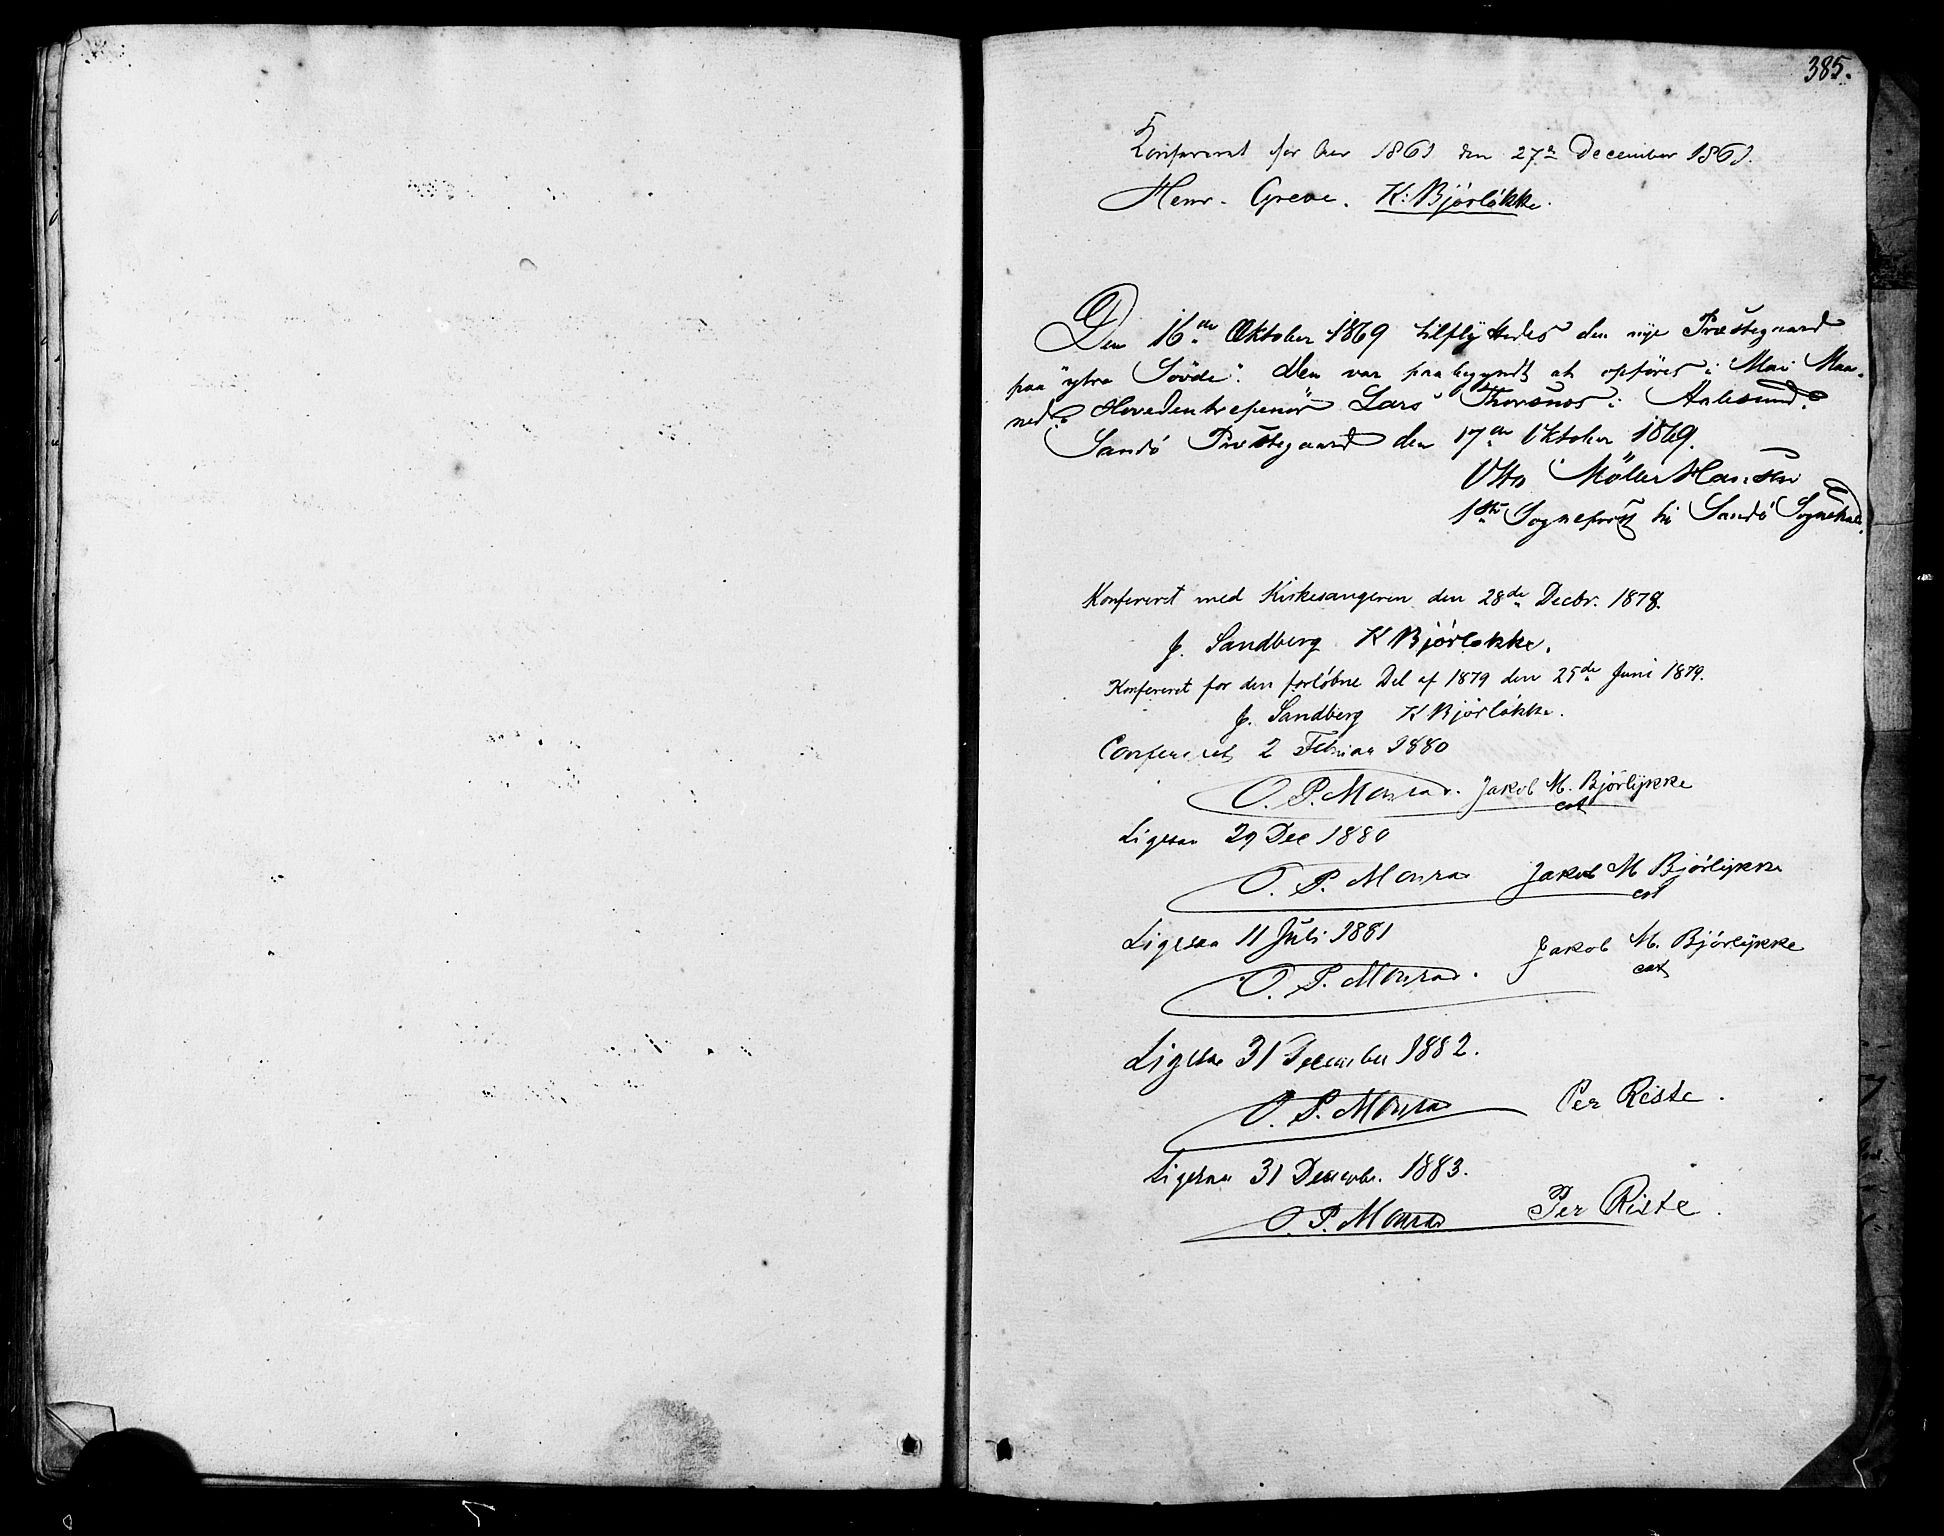 385.
Konfereret for Aar 1861 den 27de December 1861.
Henr. Greve. K: Bjørløkke.
Den 16de Oktober 1869 tilflyttedes den nye Præstegaard
paa "ytre Søvde". Den var paabegyndt at opføres i Mai Maa-
ned. Hovedentrepenör Lars Thorsnes i Aalesund.
Sandö Præstegaard den 17de Oktober 1869.
Otto Möller Hansen
1ste Sognepræst til Sandö Sognekald.
Konfereret med Kirkesangeren den 28de Decbr. 1878.
J. Sandberg K Bjørløkke.
Konfereret for den forløbne Del af 1879 den 25de Juni 1879.
J. Sandberg K Bjørløkke.
Confereret 2 Februar 1880
O. P. Monrad. Jakob M. Bjørlykke
cat
Ligesaa 29 Dec 1880
O. P. Monrad Jakob M Bjørlykke
cat
Ligesaa 11 Juli 1881
O. P. Monrad. Jakob M. Bjørlykke
cat
Ligesaa 31 December 1882.
O. P. Monrad Per Riste.
Ligesaa 31 Decembr. 1883.
O. P. Monrad Per Riste.